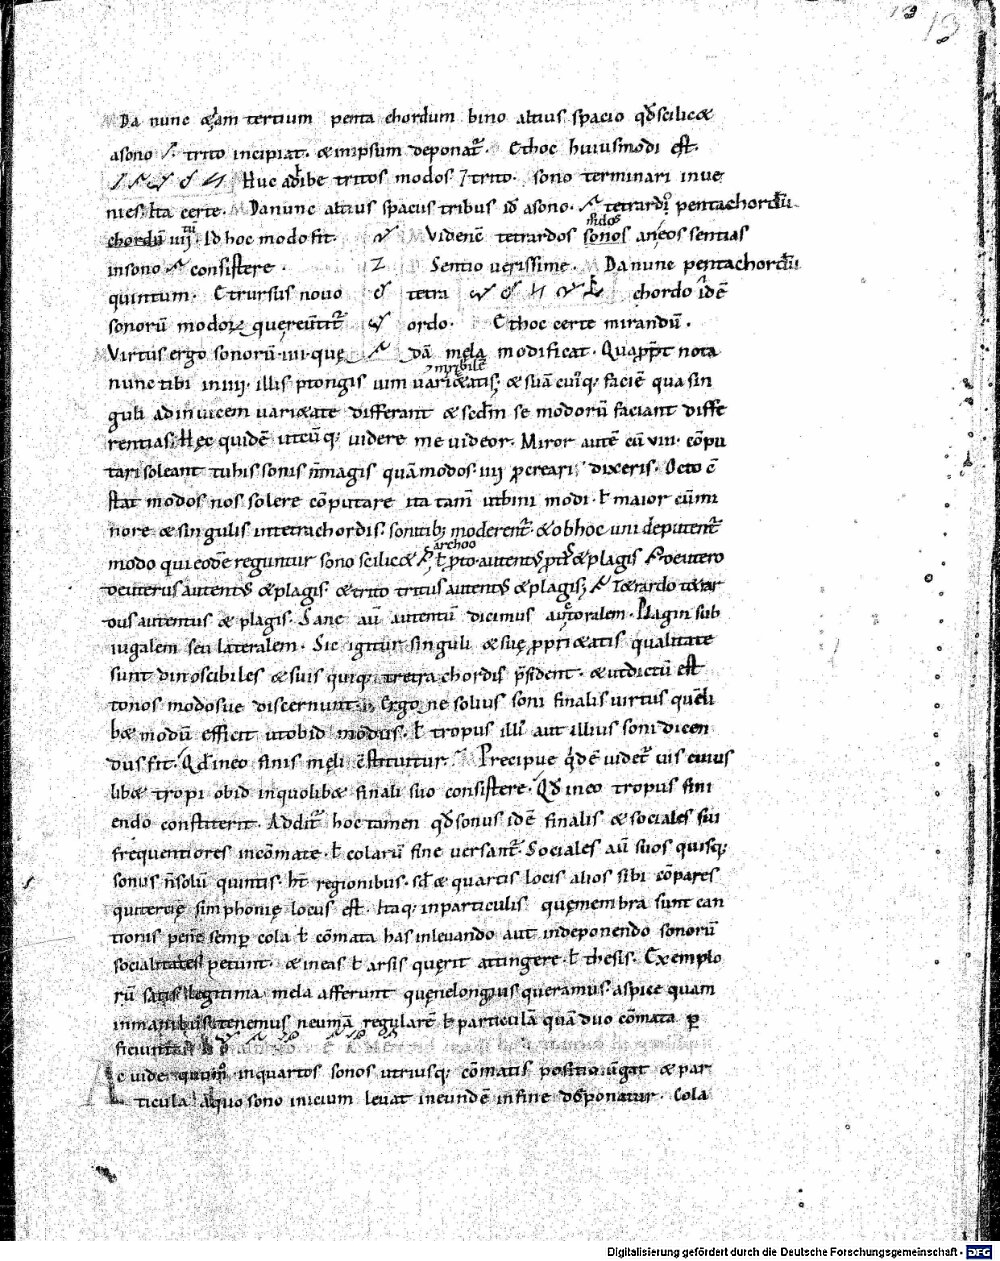 13 13
Da nunc &iam tertium penta chordum bino altius spacio qđ scilic&
a sono trito incipiat. & in ipsum deponat᷑. Et hoc huiusmodi est.
Huc adhibe tritos modos trito. sono terminari inue
nies. Ita certe. Da nunc altius spacus tribus id a sono. tetrardi pentachordū
chordū iiij. Id hoc modo fit. Videnē tetrardos sonos an eos sentias
modos
in sono consistere. Sentio verissime. Da nunc pentachordū
quintum. Et rursus nouo tetra chordo idē
sonorū modorꝝ quęreūtit᷑ ordo. Et hoc certe mirandū.
Virtus ergo sonorū iiii quę dā męla modificat. Quapp̄t nota
nunc tibi in iiii. illis ptongis uim uari&atis; & suā cuiq; faciē qua sin
guli ad inuicem uari&ate differant & scd̄m se modorū faciant diffe
rentias; Hęc quidē utcūq; uidere me uideor. Miror autē cū viii. cōpu
tari soleant tu his sonis n̄ magis quā modos iiij p̄creari dixeris. Octo ē
stat modos nos solere cōputare ita tam̄ ut bini modi. ł maior cū mi
nore & singulis in tetrachordis. sonitib; moderent᷑. & ob hoc uni deputent᷑
modo qui eodē reguntur sono scilic& ł p̄to autentꝰ ptꝰ & plagis deutero
archoo
deuterus autentꝰ & plagis. & trito tritus autentꝰ & plagis; T&rardo t&rar
dus autentus & plagis. Sane aū autentū dicimus auctoralem. Plagin sub
iugalem seu lateralem. Sic igitur singuli & suę p̱pri&atis qualitate
sunt dinoscibiles & suis quiq; tetra chordis p̄sident. & ut dictū est
tonos modosue discernunt. Ergo ne solius soni finalis uirtus quēli
b& modū efficit ut ob id modus. ł tropus illi aut illius soni dicen
dus fit. Qđ in eo finis męli cstituitur. Precipue qdē uidet᷑ uis cuius
lib& tropi ob id in quolib& finali suo consistere. Qđ in eo tropus fini
endo constiterit. Addit᷑ hoc tamen qđ sonus idē finalis & sociales sui
frequentiores in cōmate. ł colarū fine versant᷑. Sociales aū suos quisq;
sonus n̄ solū quintis. ht̄ regionibus. sđ & quartis locis alios sibi cōpares
qui tercię simphonię locus est. Itaq; in particulis quę membra sunt can
tionis pene semp cola ł cōmata has in leuando aut in deponendo sonorū
socialitates petunt. & in eas ł arsis quęrit attingere. ł thesis. Exemplo
rū satis legitima mela afferunt quęne longius queramus. aspice quam
in manibus tenemus neumā regularē ł particulā quā duo cōmata p
ficiunt
Ac uide quōm in quartos sonos utriusq; cōmatis positio ūgat & par
ticula a quo sono inicium leuat in eundē in fine deponatur. Cola
Digitalisierung gefördert durch die Deutsche Forschungsgemeinschaft - DFG